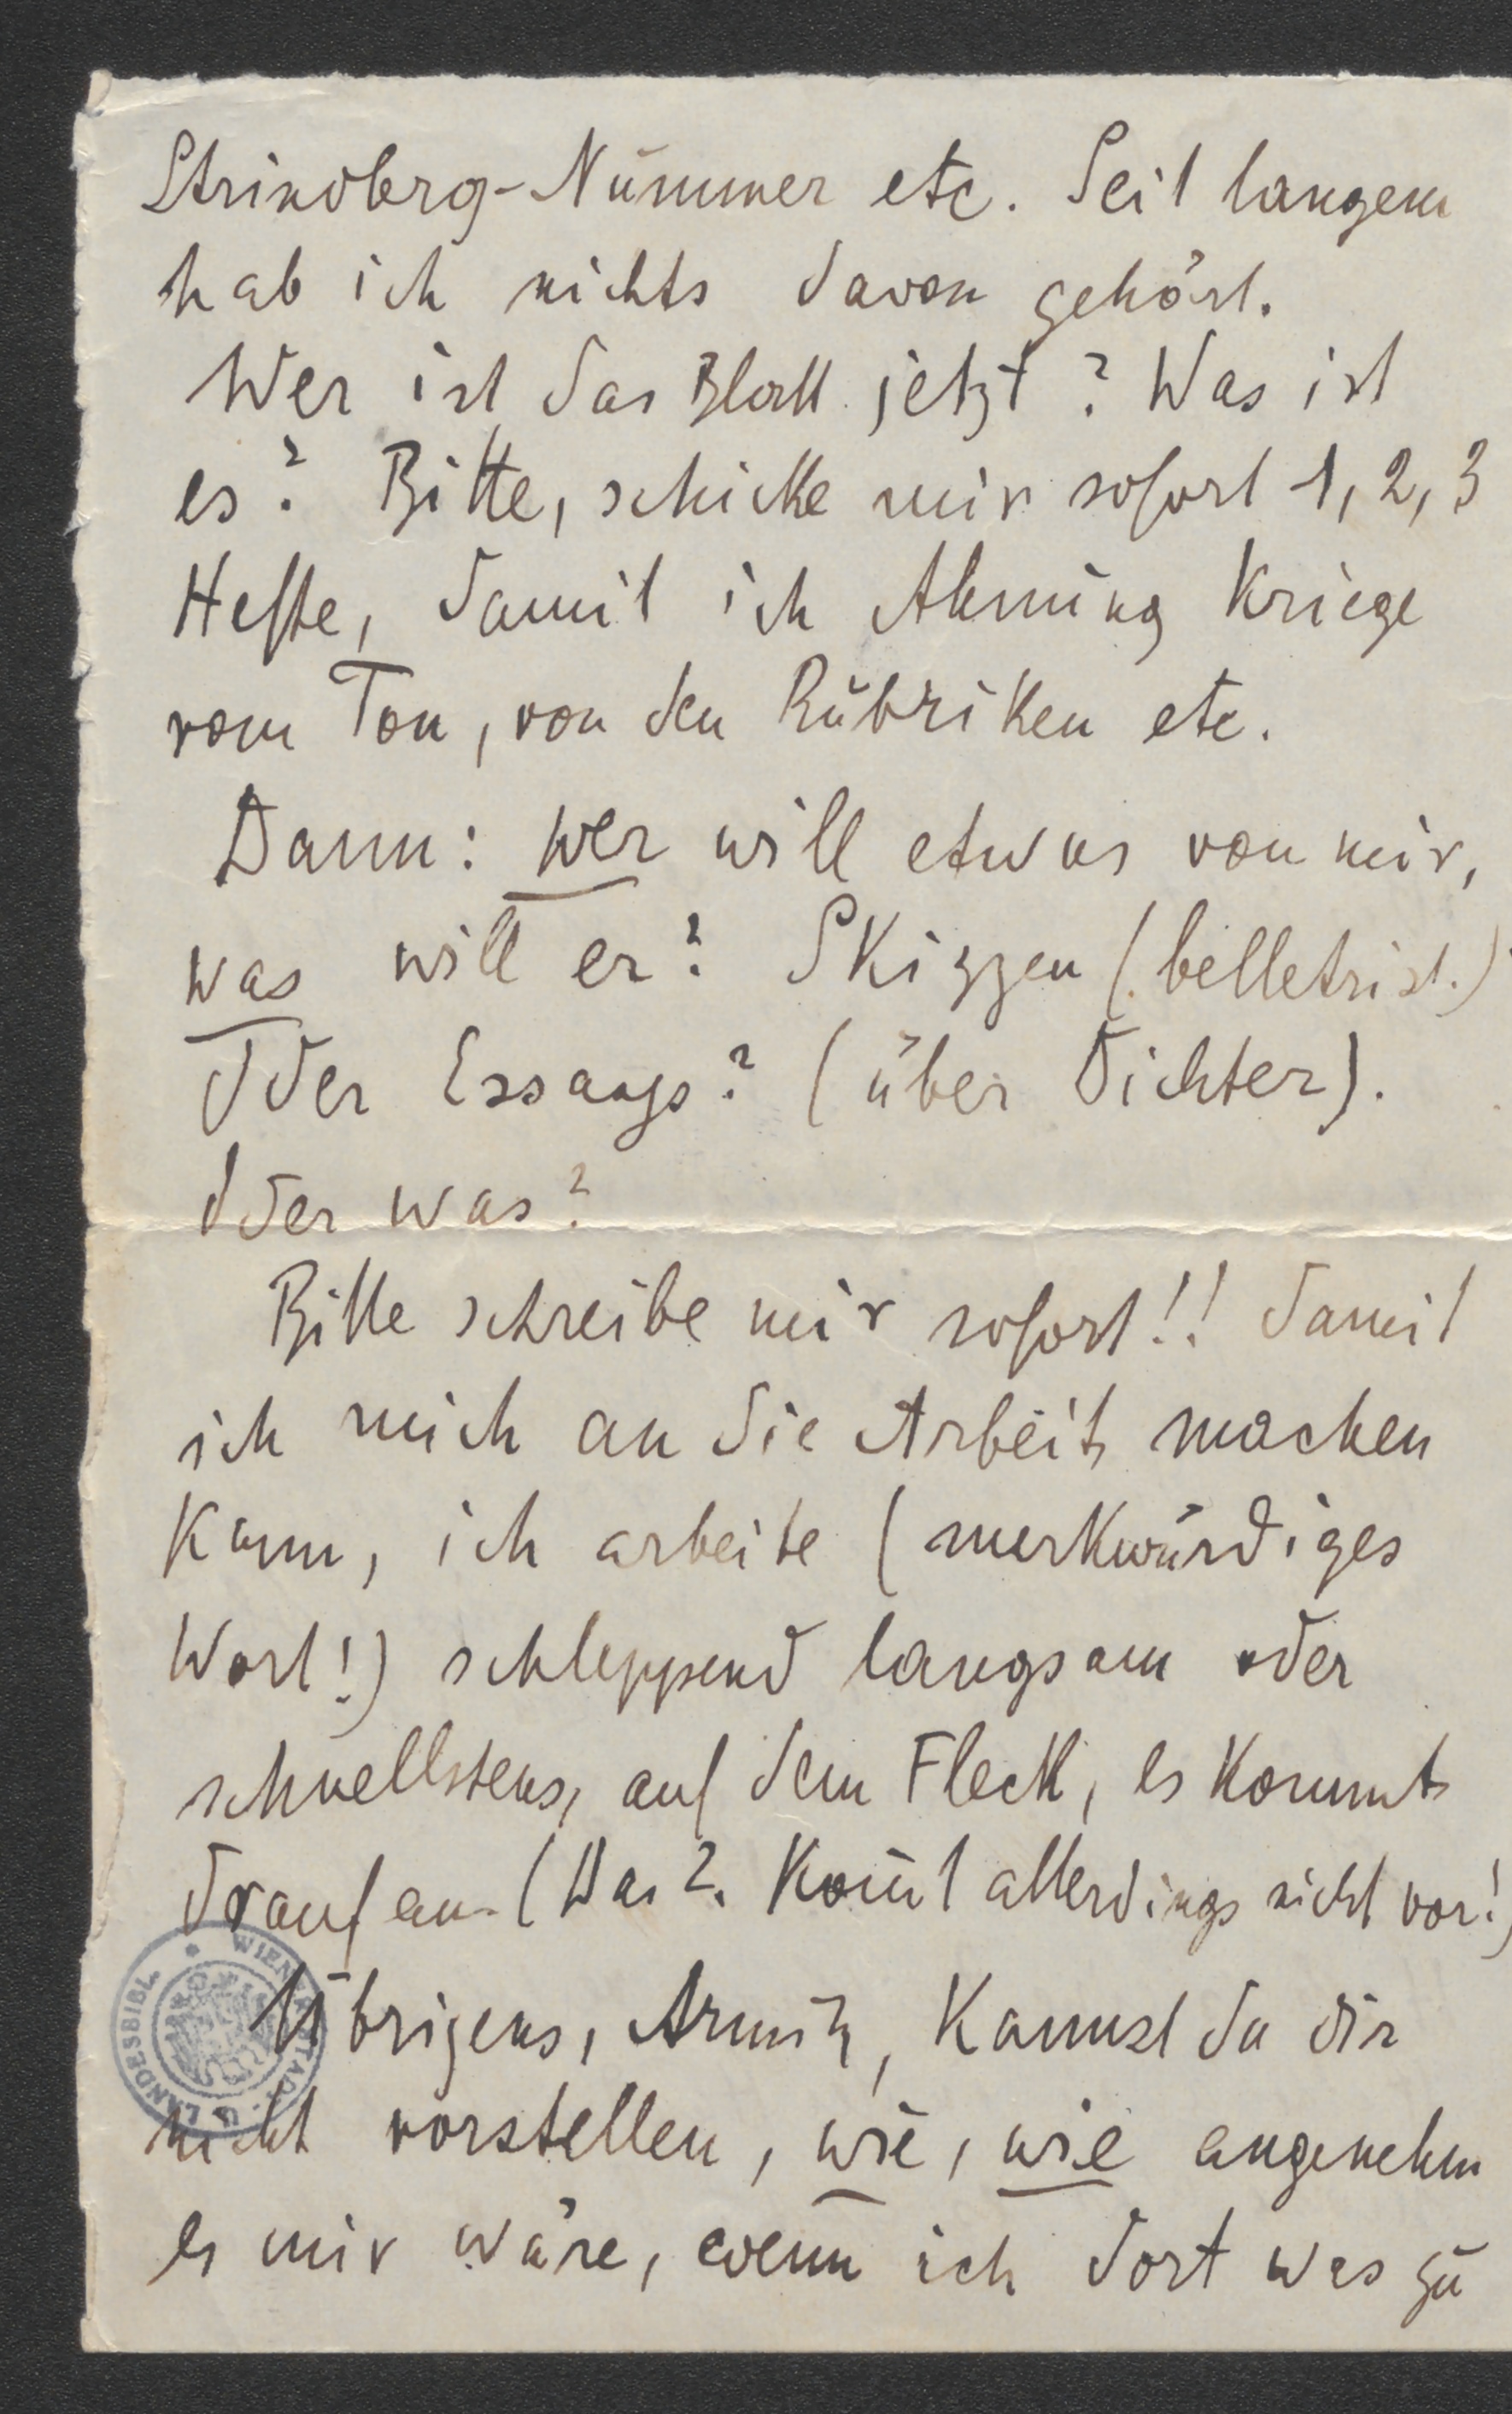 Strindberg-Nummer etc. Seit langem
hab ich nichts davon gehört.
Wer ist das Blatt jetzt? Was ist
es? Bitte, schicke mir sofort 1, 2, 3
Hefte, damit ich Ahnung kriege
vom Ton, von den Rubriken etc.
Dann: wer will etwas von mir,
was will er? Skizzen (belletrist.)
Oder Essays? (über Dichter).
Oder was?
Bitte schreibe mir sofort!! damit
ich mich an die Arbeit machen
kann, ich arbeite (merkwürdiges
Wort!) schleppend langsam oder
schnellstens, auf dem Fleck, es kommt
drauf an. (Das 2. kom̄t allerdings nicht vor!)
Übrigens, kannst du dir
nicht vorstellen, wie, wie angenehm
es mir wäre, wenn ich dort was zu
WIENER STADT- U. LANDESBIBL.